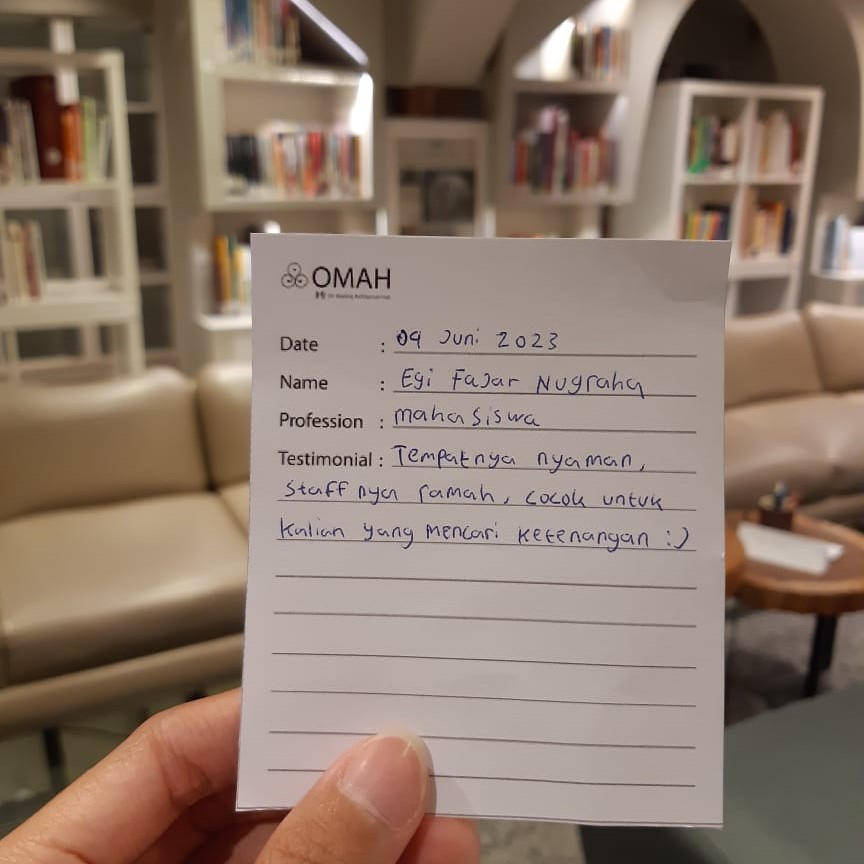 OMAH
Date : 09 Juni 2023
Name : Egi Fajar Nugraha
Profession : mahasiswa
Testimonial : Tempatnya nyaman,
Staff nya ramah, cocok untuk
Kalian yang mencari ketenangan :)